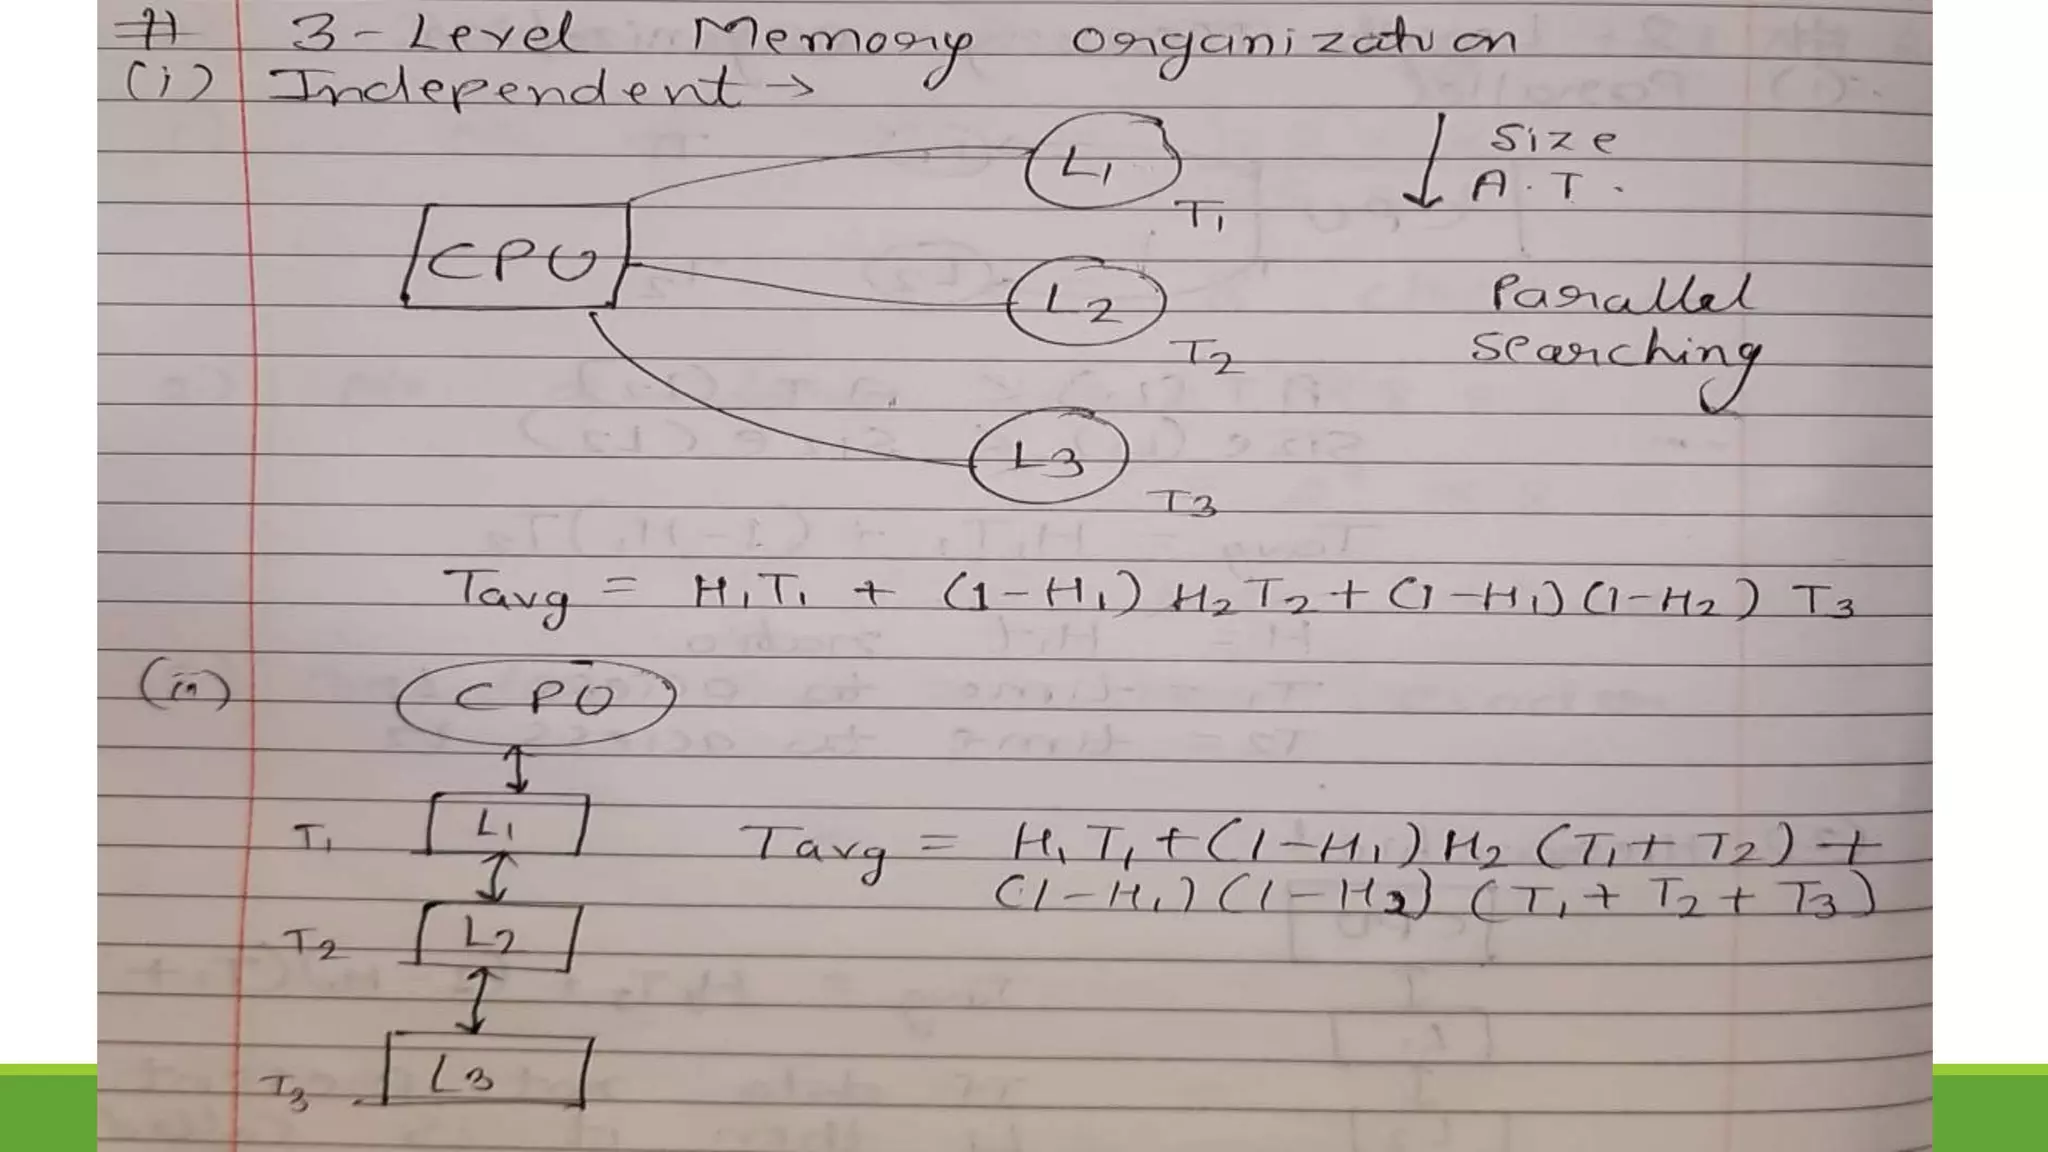 # 3-Level Memory organization
(i) Independent →
CPU
L1
T1
L2
T2
L3
T3
↓ Size
A.T.
Parallel
searching
Tavg = H1T1 + (1-H1) H2T2 + (1-H1)(1-H2) T3
(ii) CPU
T1 L1
T2 L2
T3 L3
Tavg = H1T1 + (1-H1) H2 (T1 + T2) +
(1-H1) (1-H2) (T1 + T2 + T3)